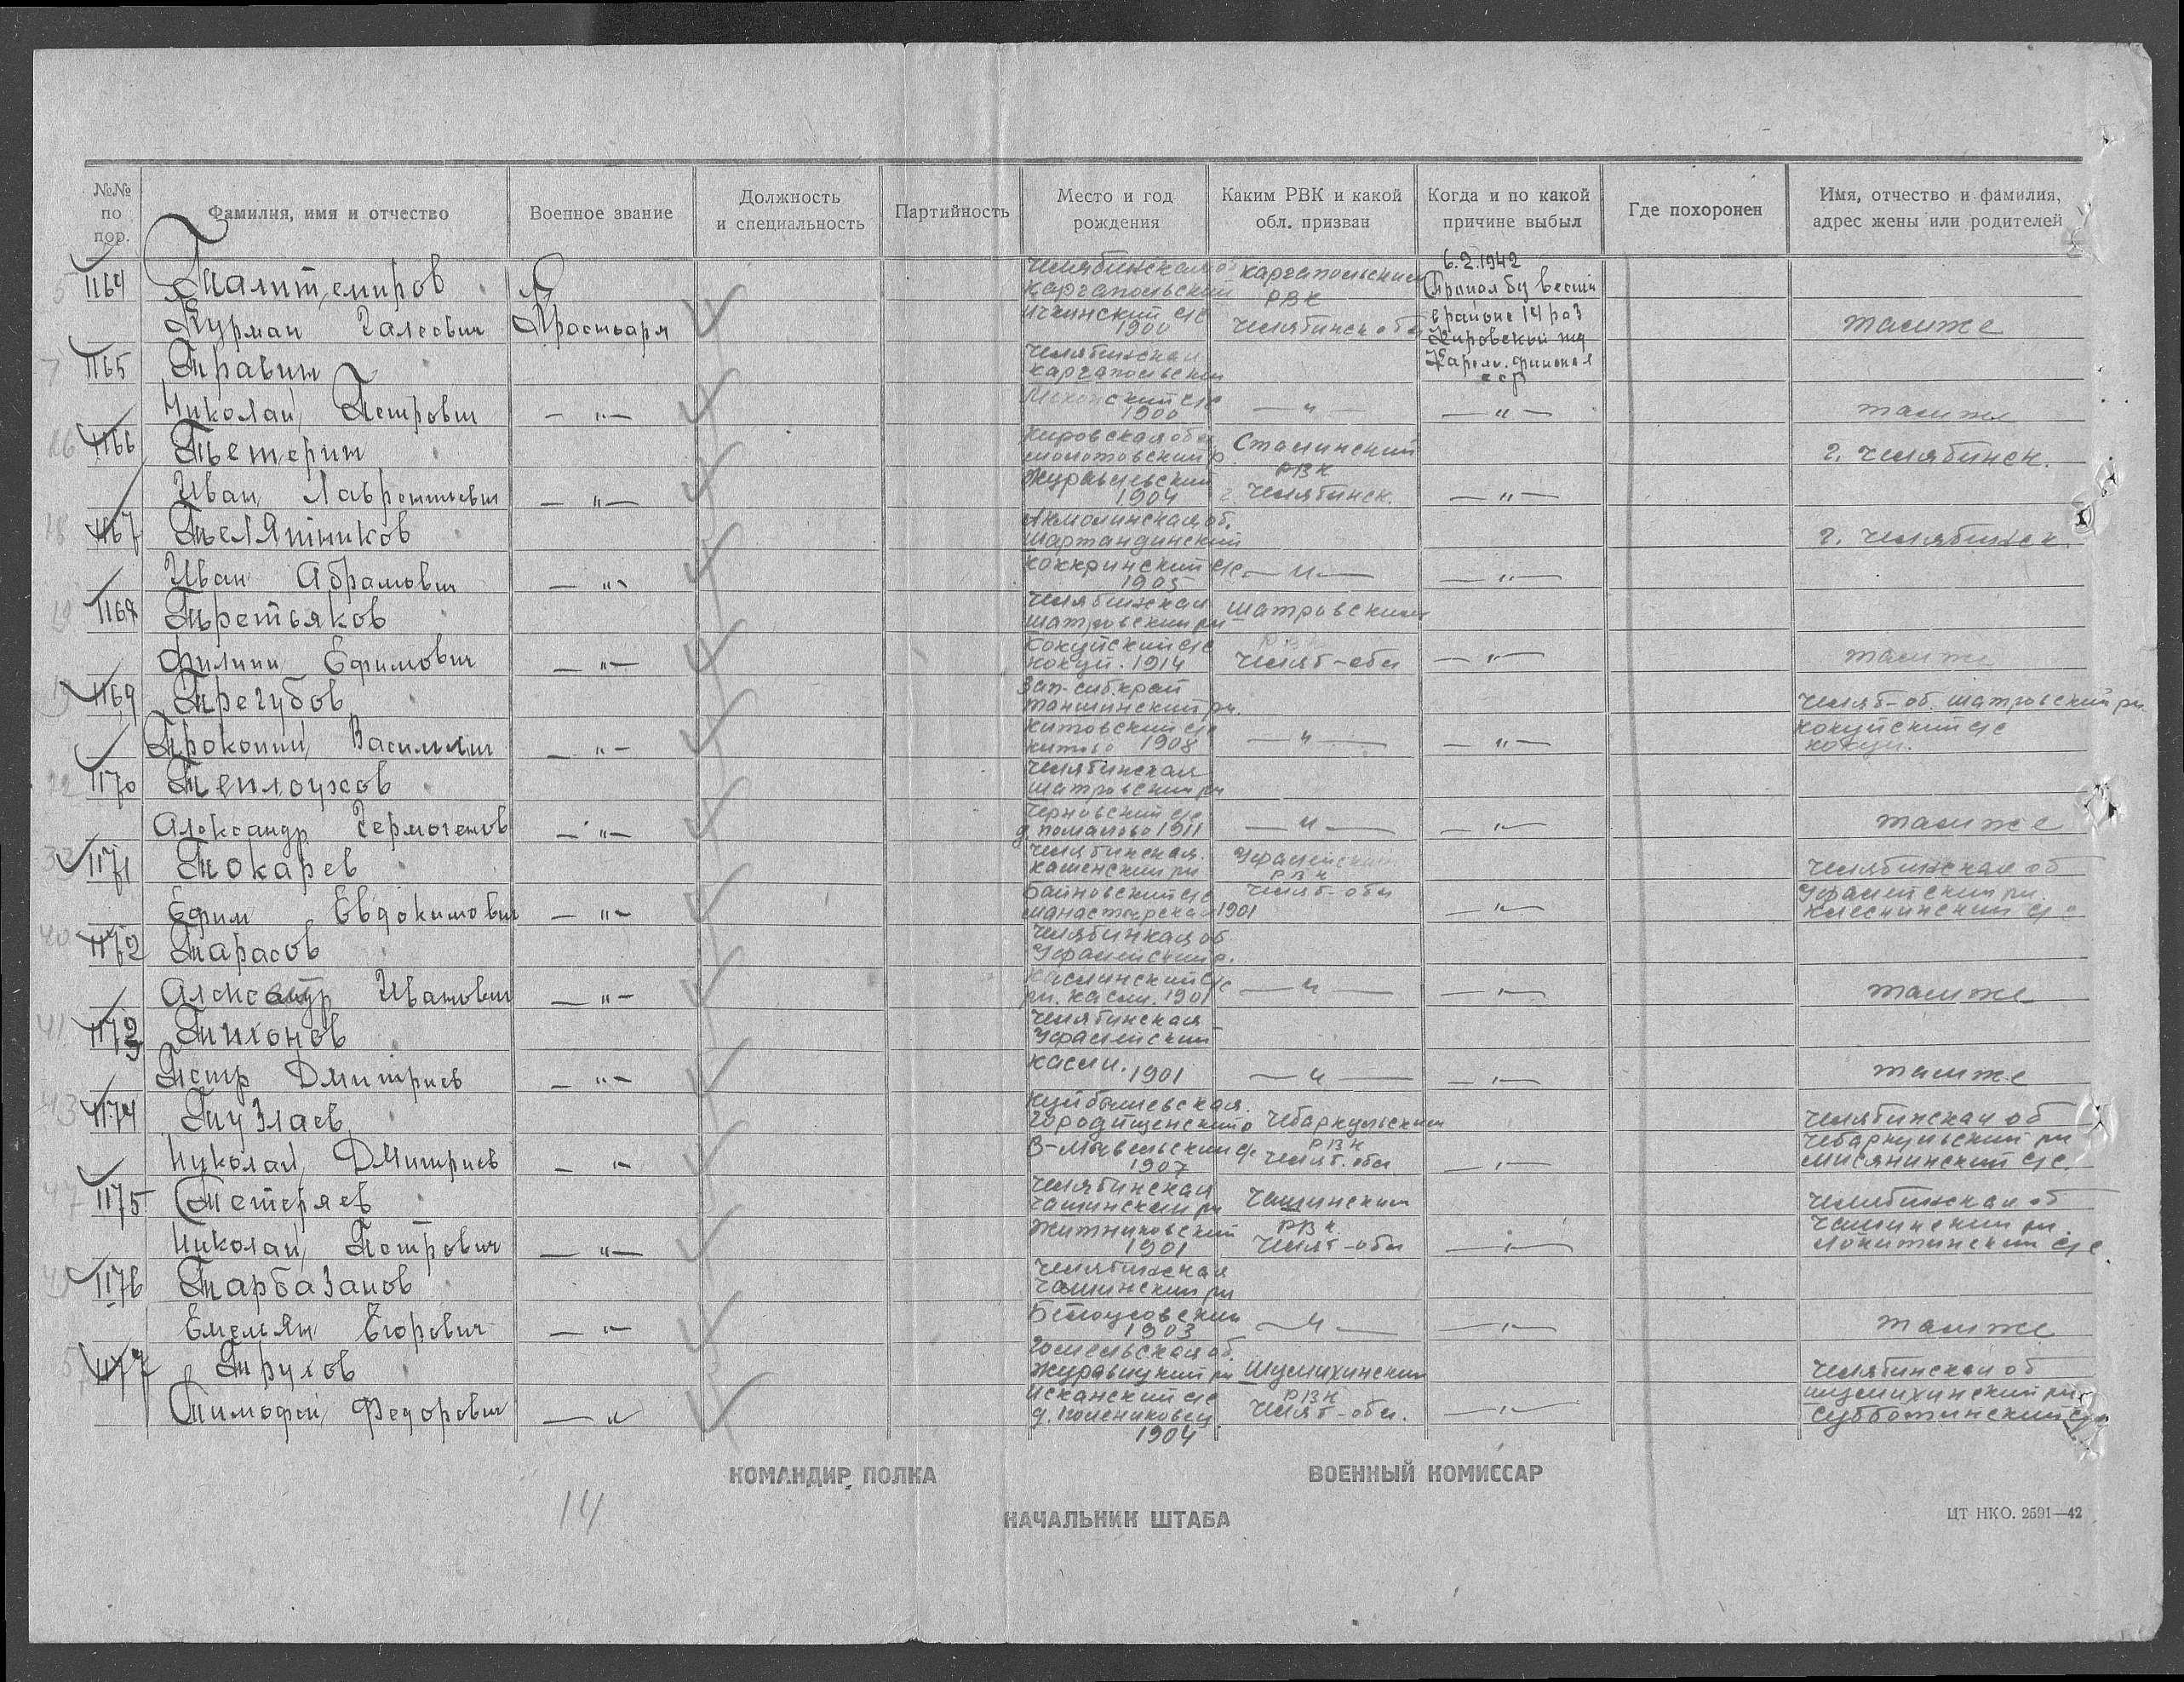 №№ по пор.
Фамилия, имя и отчество
Военное звание
Должность и специальность
Партийность
Место и год рождения
Каким РВК и какой обл. призван
Когда и по какой причине выбыл
Где похоронен
Имя, отчество и фамилия, адрес жены или родителей
1164 Галитемиров Челябинская об Каргапольским 6.2.1942
Каргапольский РВК Пропал без вести
Курман Галеевич Красноарм Ичкинский с/с 1900 Челябинск обл в районе 14 раз таmже
Кировской жд
1165 Травин Челябинская Карело. финская
Каргапольский ССР
Николай Петрович — " — Мехонский с/с 1900 — " — — " — таmже
1166 Тетерин Кировская обл Сталинский г. Челябинск.
Молотовский р РВК
Иван Лаврентьевич — " — Журавлевский 1904 г. Челябинск. — " —
1167 Телятников Акмолинская об. г. Челябинск
Шартандинский
Иван Абрамович — " — с/с 1905 — " — — " —
1168 Третьяков Челябинская Шатровским
Шатровский рн РВК
Филипп Ефимович — " — Кокуйский с/с Кокуй. 1914 Челяб-обл — " — таmже
1169 Трегубов Зап-сиб.край Челяб-об. Шатровский рн
рн.
Прокопий Васильевич — " — Китовский с/с Китово 1908 — " — — " — Кокуйский с/с Кокуй.
1170 Теплоухов Челябинская
Шатровский рн
Александр Гермогенов — " — Терновский с/с 1911 — " — — " — таmже
1171 Токарев Челябинская. Уфалейским Челябинская об
Каменский рн РВК Уфалейский рн
Ефим Евдокимович — " — Байновский с/с 1901 Челяб-обл — " — с/с
1172 Тарасов Челябинкая об
Уфалейский р.
Александр Иванович — " — Каслинский с/с рн. Касли. 1901 — " — — " — таmже
1173 Тихонов Челябинская
Уфалейский
Петр Дмитриев — " — Касли. 1901 — " — — " — таmже
1174 Тузлаев Куйбышевская. Чебаркульским Челябинская об
Городищенский р РВК Чебаркульский рн
Николай Дмитриев — " — с/с 1907 Челяб. обл — " — с/с.
1175 Тетеряев Челябинская Чашинским Челябинская об
Чашинский рн РВК Чашинский рн.
Николай Петрович — " — Житниковский 1901 Челяб-обл — " — с/с
1176 Тарбазанов Челябинская
Чашинский рн
Емельян Егорович — " — Белоусовский 1903 — " — — " — таmже
1177 Трухов Гомельская об. Шумихинским Челябинская об
Журавицкий рн РВК Шумихинский рн
Тимофей Федорович — " — с/с 1904 Челяб-обл. — " — Субботинский с/с
КОМАНДИР ПОЛКА
ВОЕННЫЙ КОМИССАР
14
НАЧАЛЬНИК ШТАБА
ЦТ НКО. 2591—42